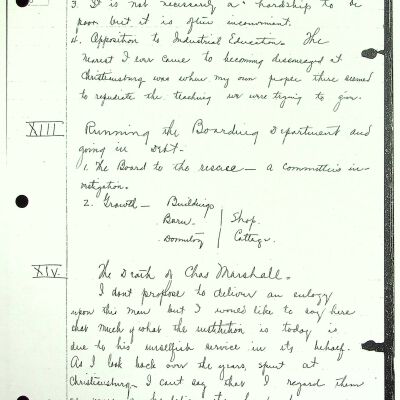 3. It is not necessarily a hardship to be
poor but it is often inconvenient.
4. Opposition to Industrial Education. The
nearest I ever came to becoming discouraged at
Christiansburg was when my own people there seemed
to repudiate the teaching we were trying to give.
XIII Running the Boarding Department and
going in Debt.
1. The Board to the rescue — a committee's in-
vestigation.
2. Growth — Buildings
Barn. Shop.
Dormitory Cottage.
XIV The Death of Chas Marshall.
I dont propose to deliver an eulogy
upon this man but I would like to say here
that much of what the institution is today is
due to his unselfish service in its behalf.
As I look back over the years, spent at
Christiansburg I cant say that I regard them